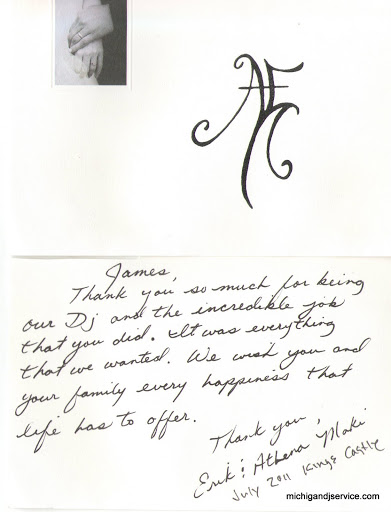 AE
James,
Thank you so much for being
our Dj and the incredible job
that you did. It was everything
that we wanted. We wish you and
your family every happiness that
life has to offer.
Thank you,
Erik & Athena Maki
July 2011 Kings Castle
michigandjservice.com